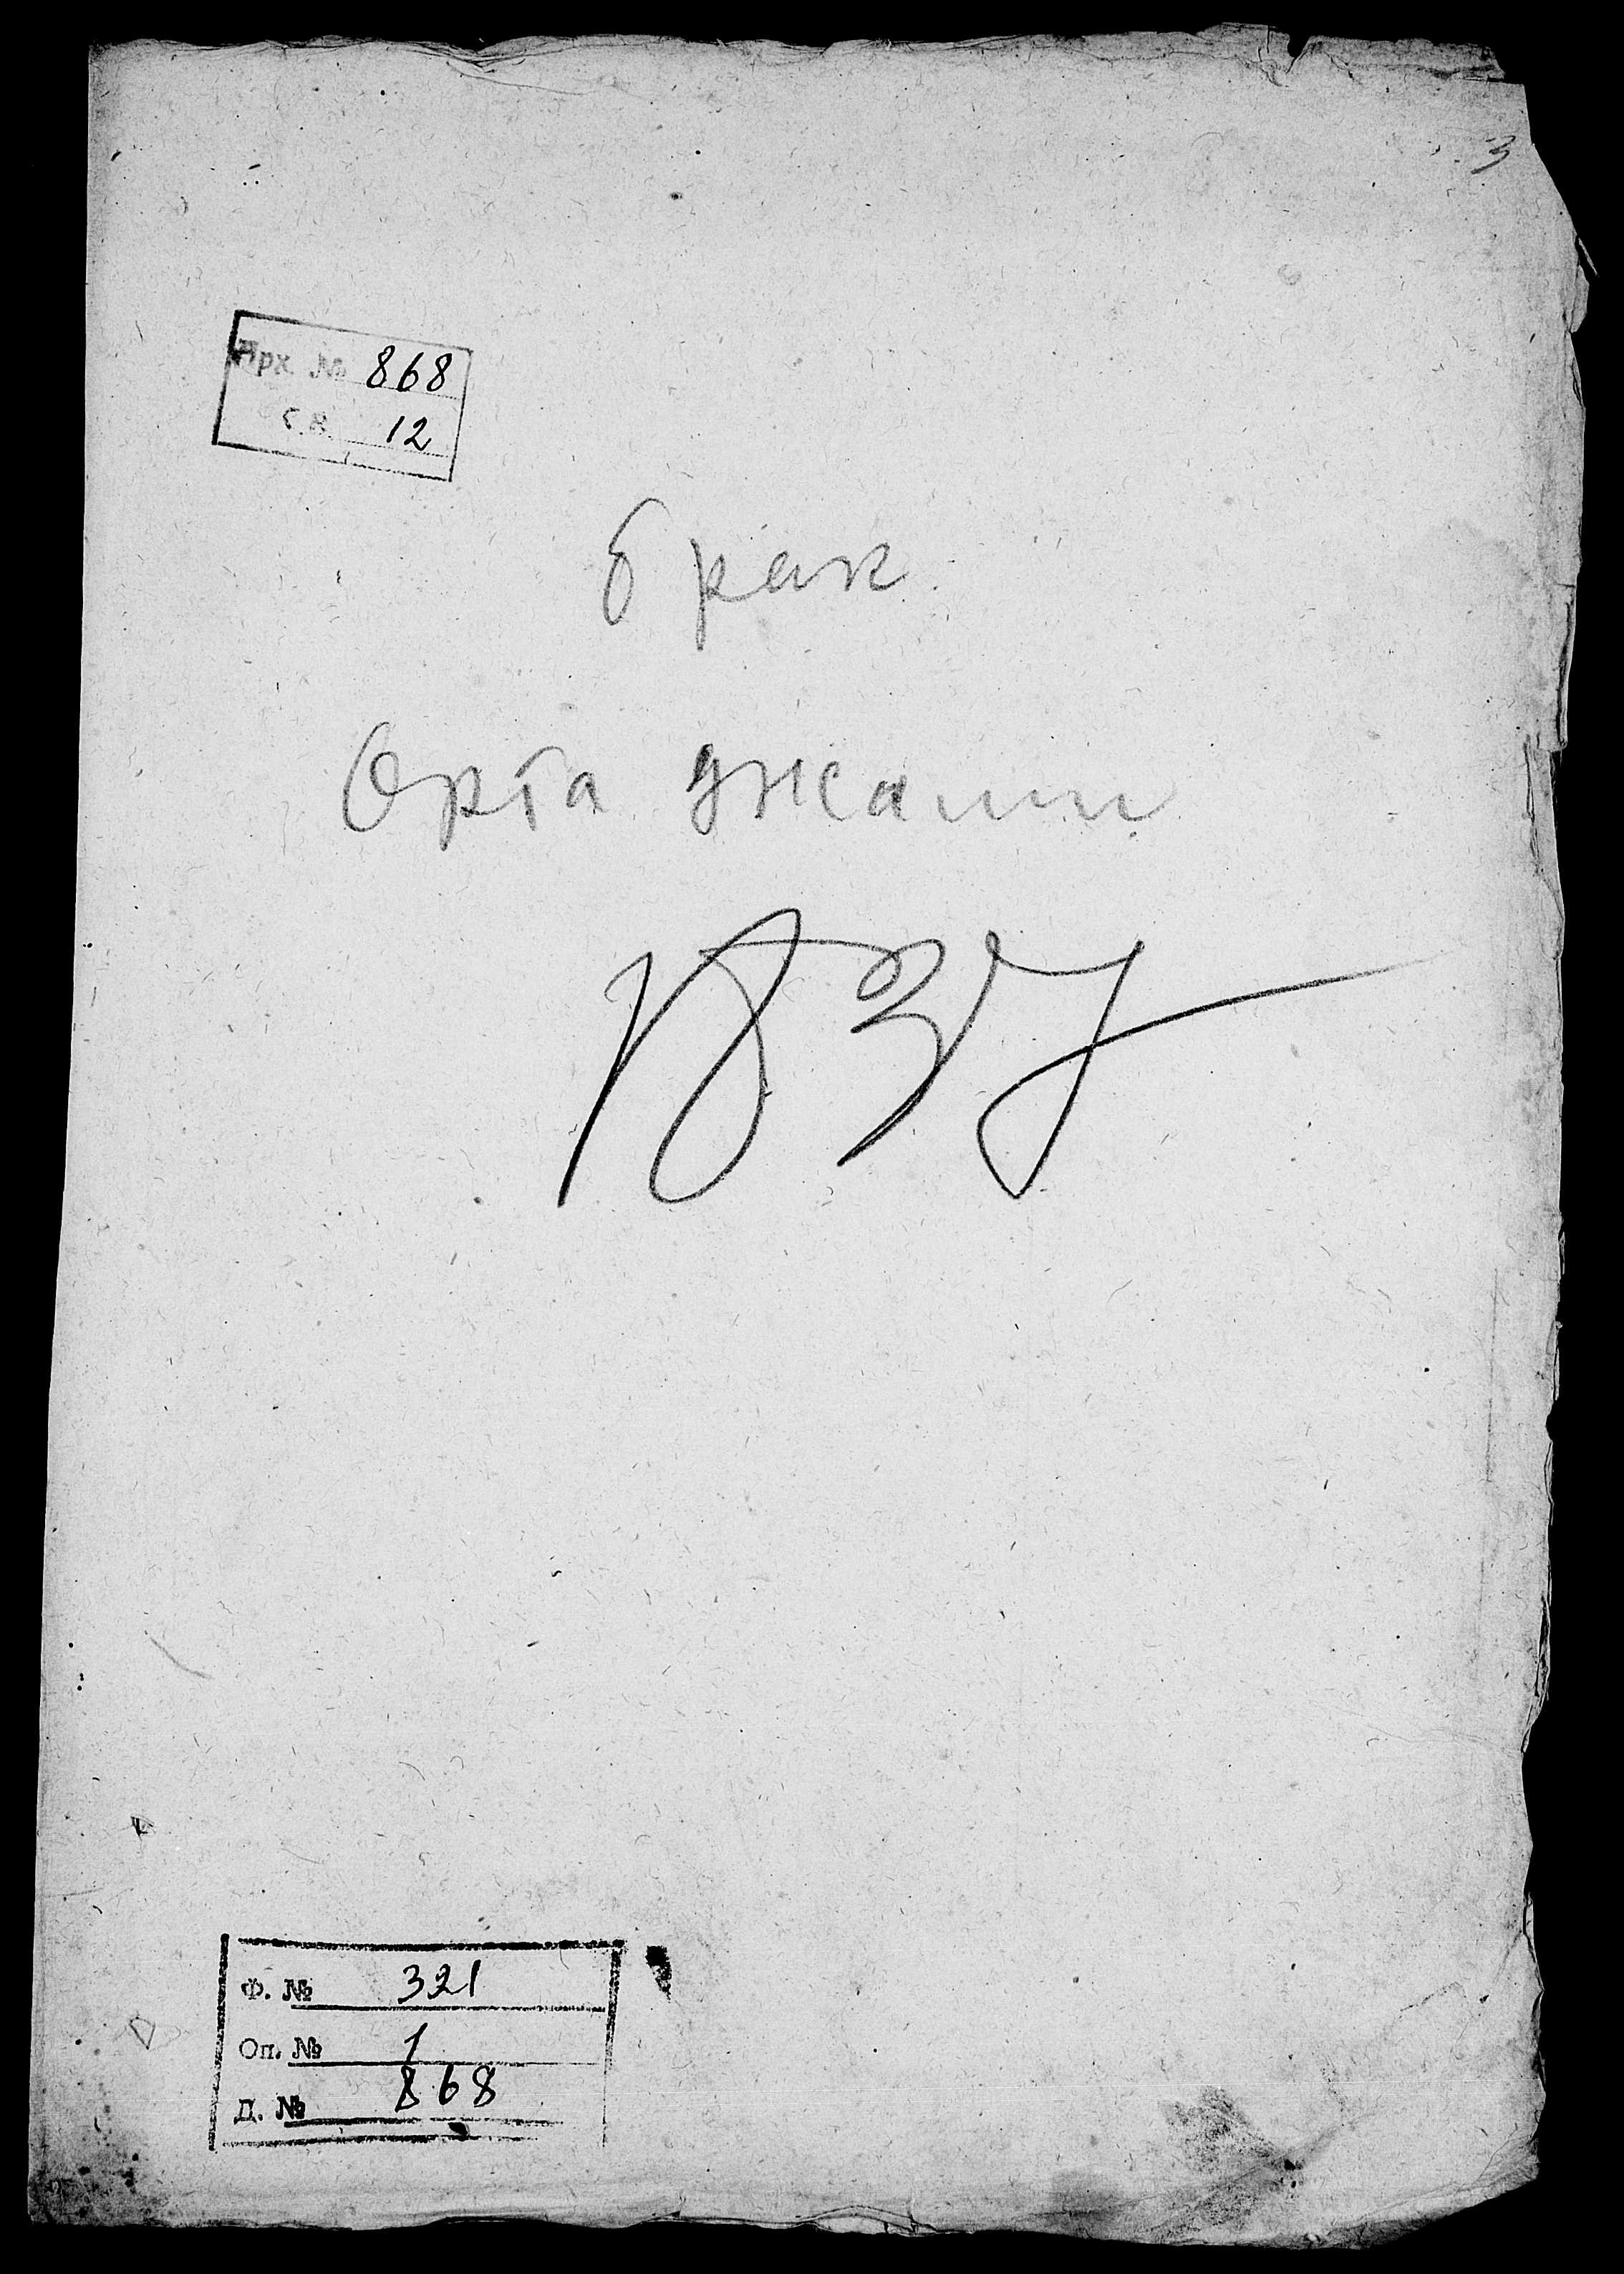 3
Арх. № 868
С.В. 12
брак
Орта джами
Ф. № 321
Оп. № 1
Д. № 868